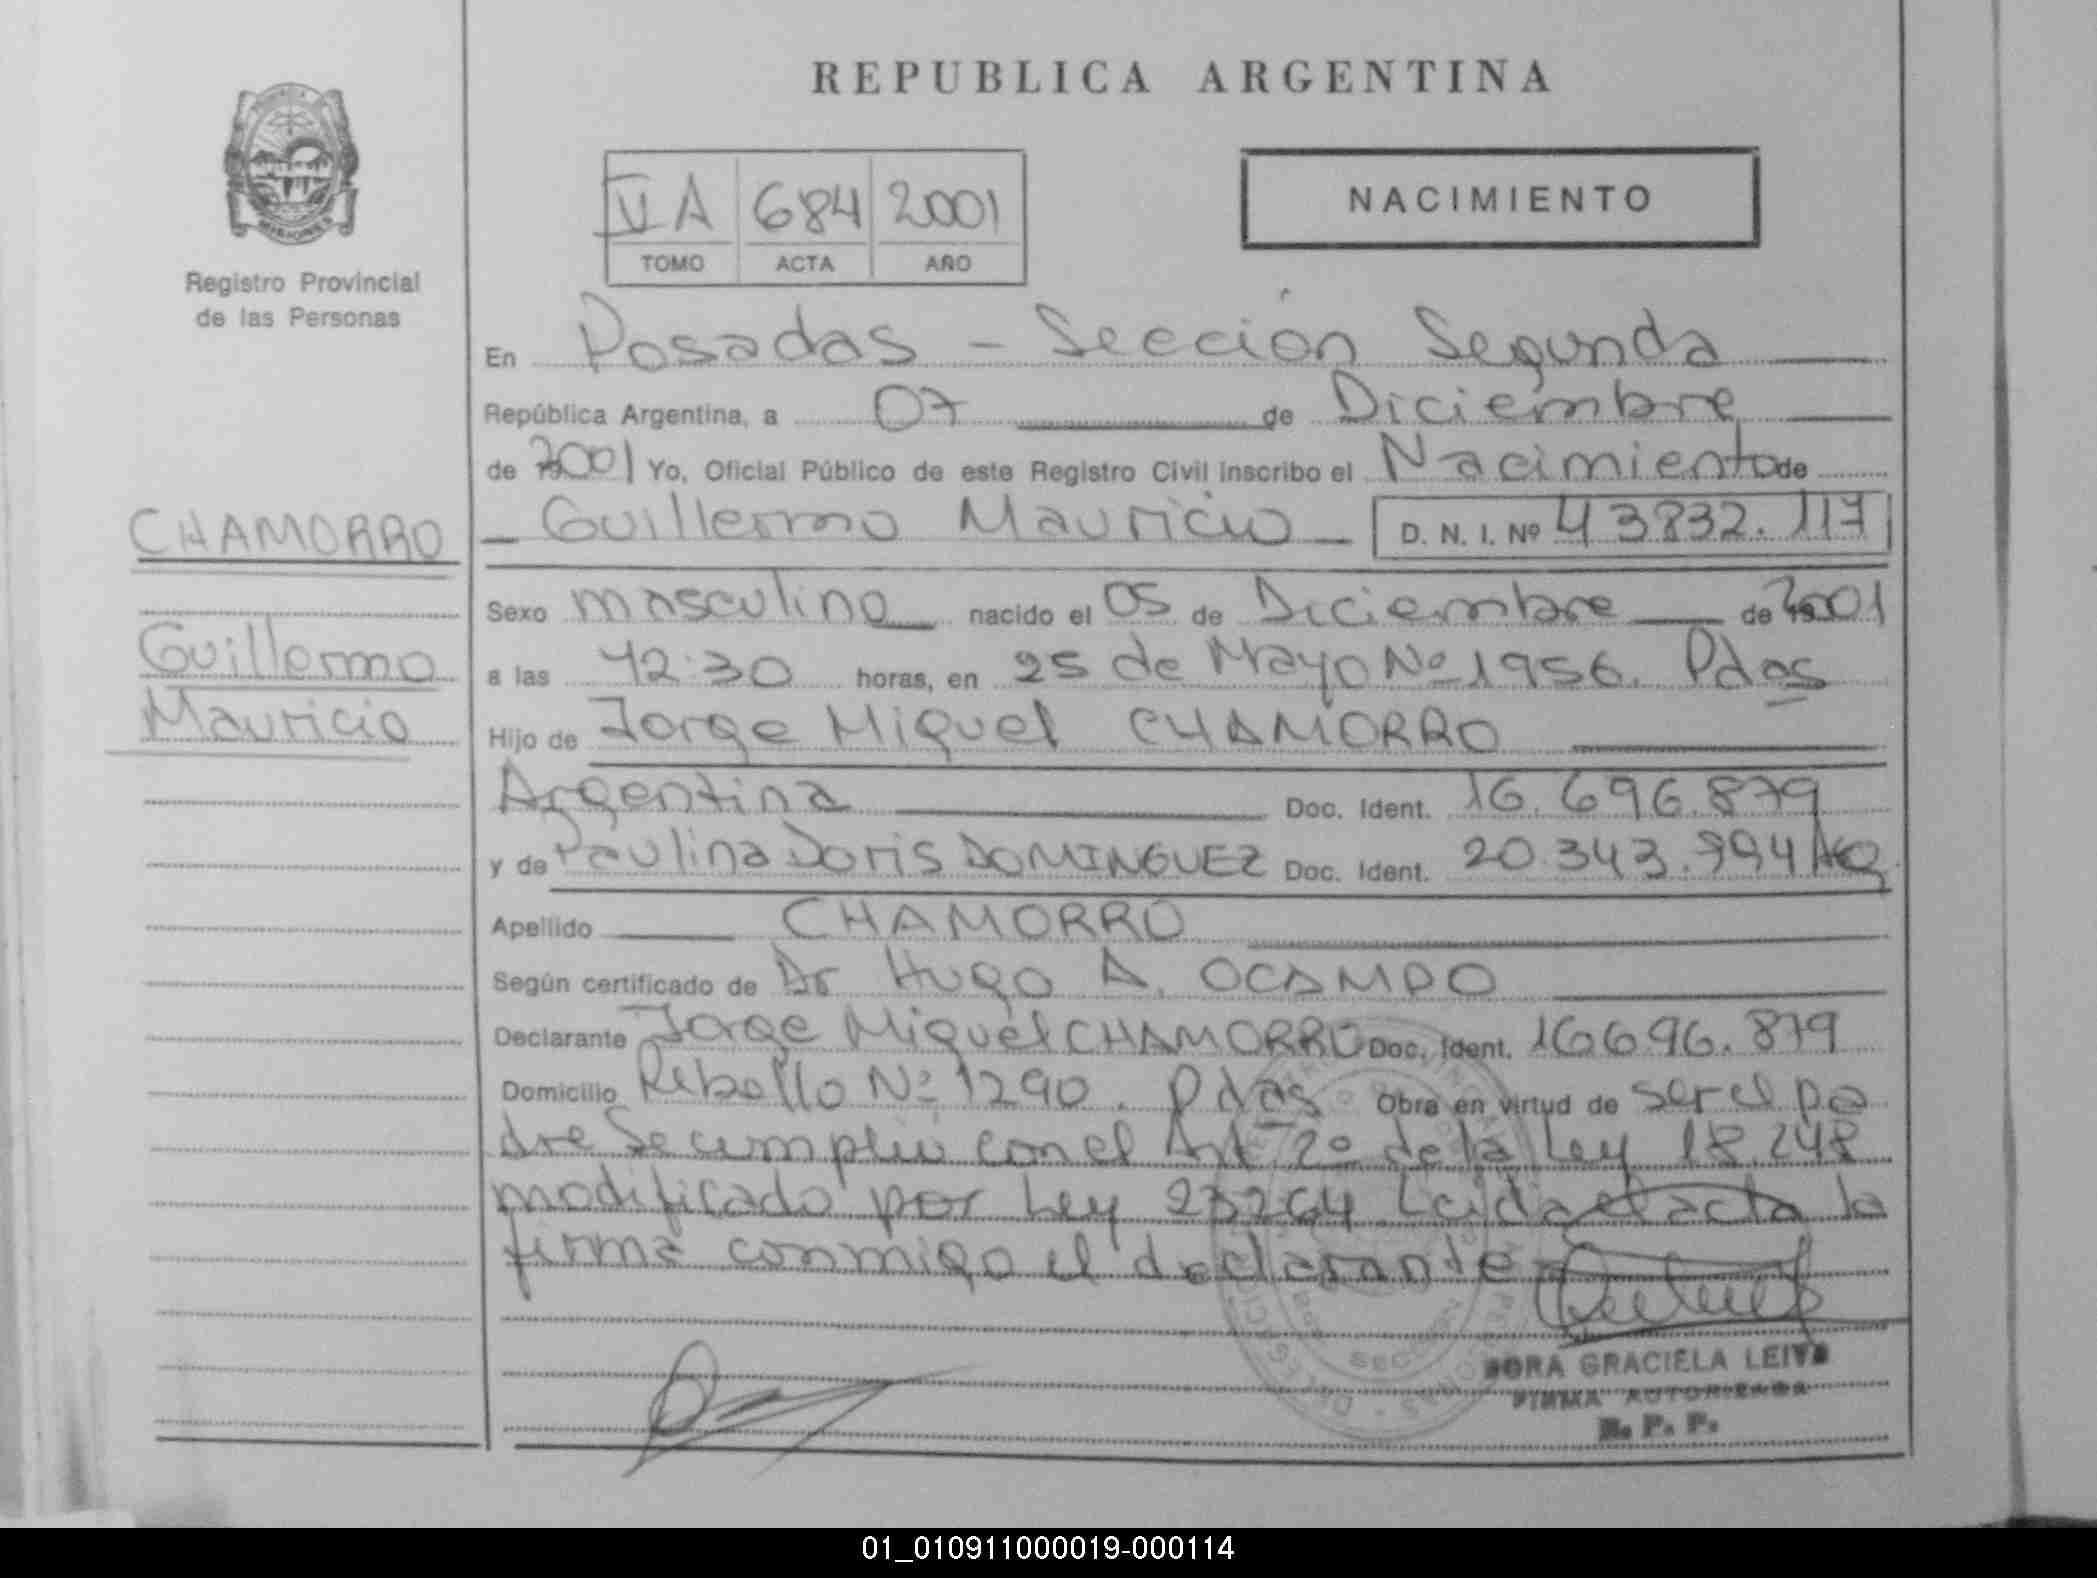 REPUBLICA ARGENTINA
VA 684 2001
TOMO ACTA AÑO
NACIMIENTO
MISIONES
Registro Provincial
de las Personas
En Posadas - Sección Segunda
República Argentina, a 07 de Diciembre
de 2001 Yo, Oficial Público de este Registro Civil inscribo el Nacimiento de
CHAMORRO
Guillermo Mauricio D. N. I. Nº 43832.117
Sexo masculino nacido el 05 de Diciembre de 2001
Guillermo
Mauricio
a las 12:30 horas, en 25 de Mayo Nº 1956. Pdas
Hijo de Jorge Miguel CHAMORRO
Argentina Doc. Ident. 16.696.879
y de Paulina Doris DOMINGUEZ Doc. Ident. 20.343.994 Arg
Apellido CHAMORRO
Según certificado de Dr Hugo A. OCAMPO
Declarante Jorge Miguel CHAMORRO Doc. Ident. 16696.879
Domicilio Rebollo Nº 1290. Pdas Obra en virtud de ser el pa
dre Se cumplio con el Art 2º de la Ley 18.248
modificado por Ley 23264 Leida el acta la
firma conmigo el declarante
DORA GRACIELA LEIVA
FIRMA AUTORIZADA
R. P. P.
01_010911000019-000114